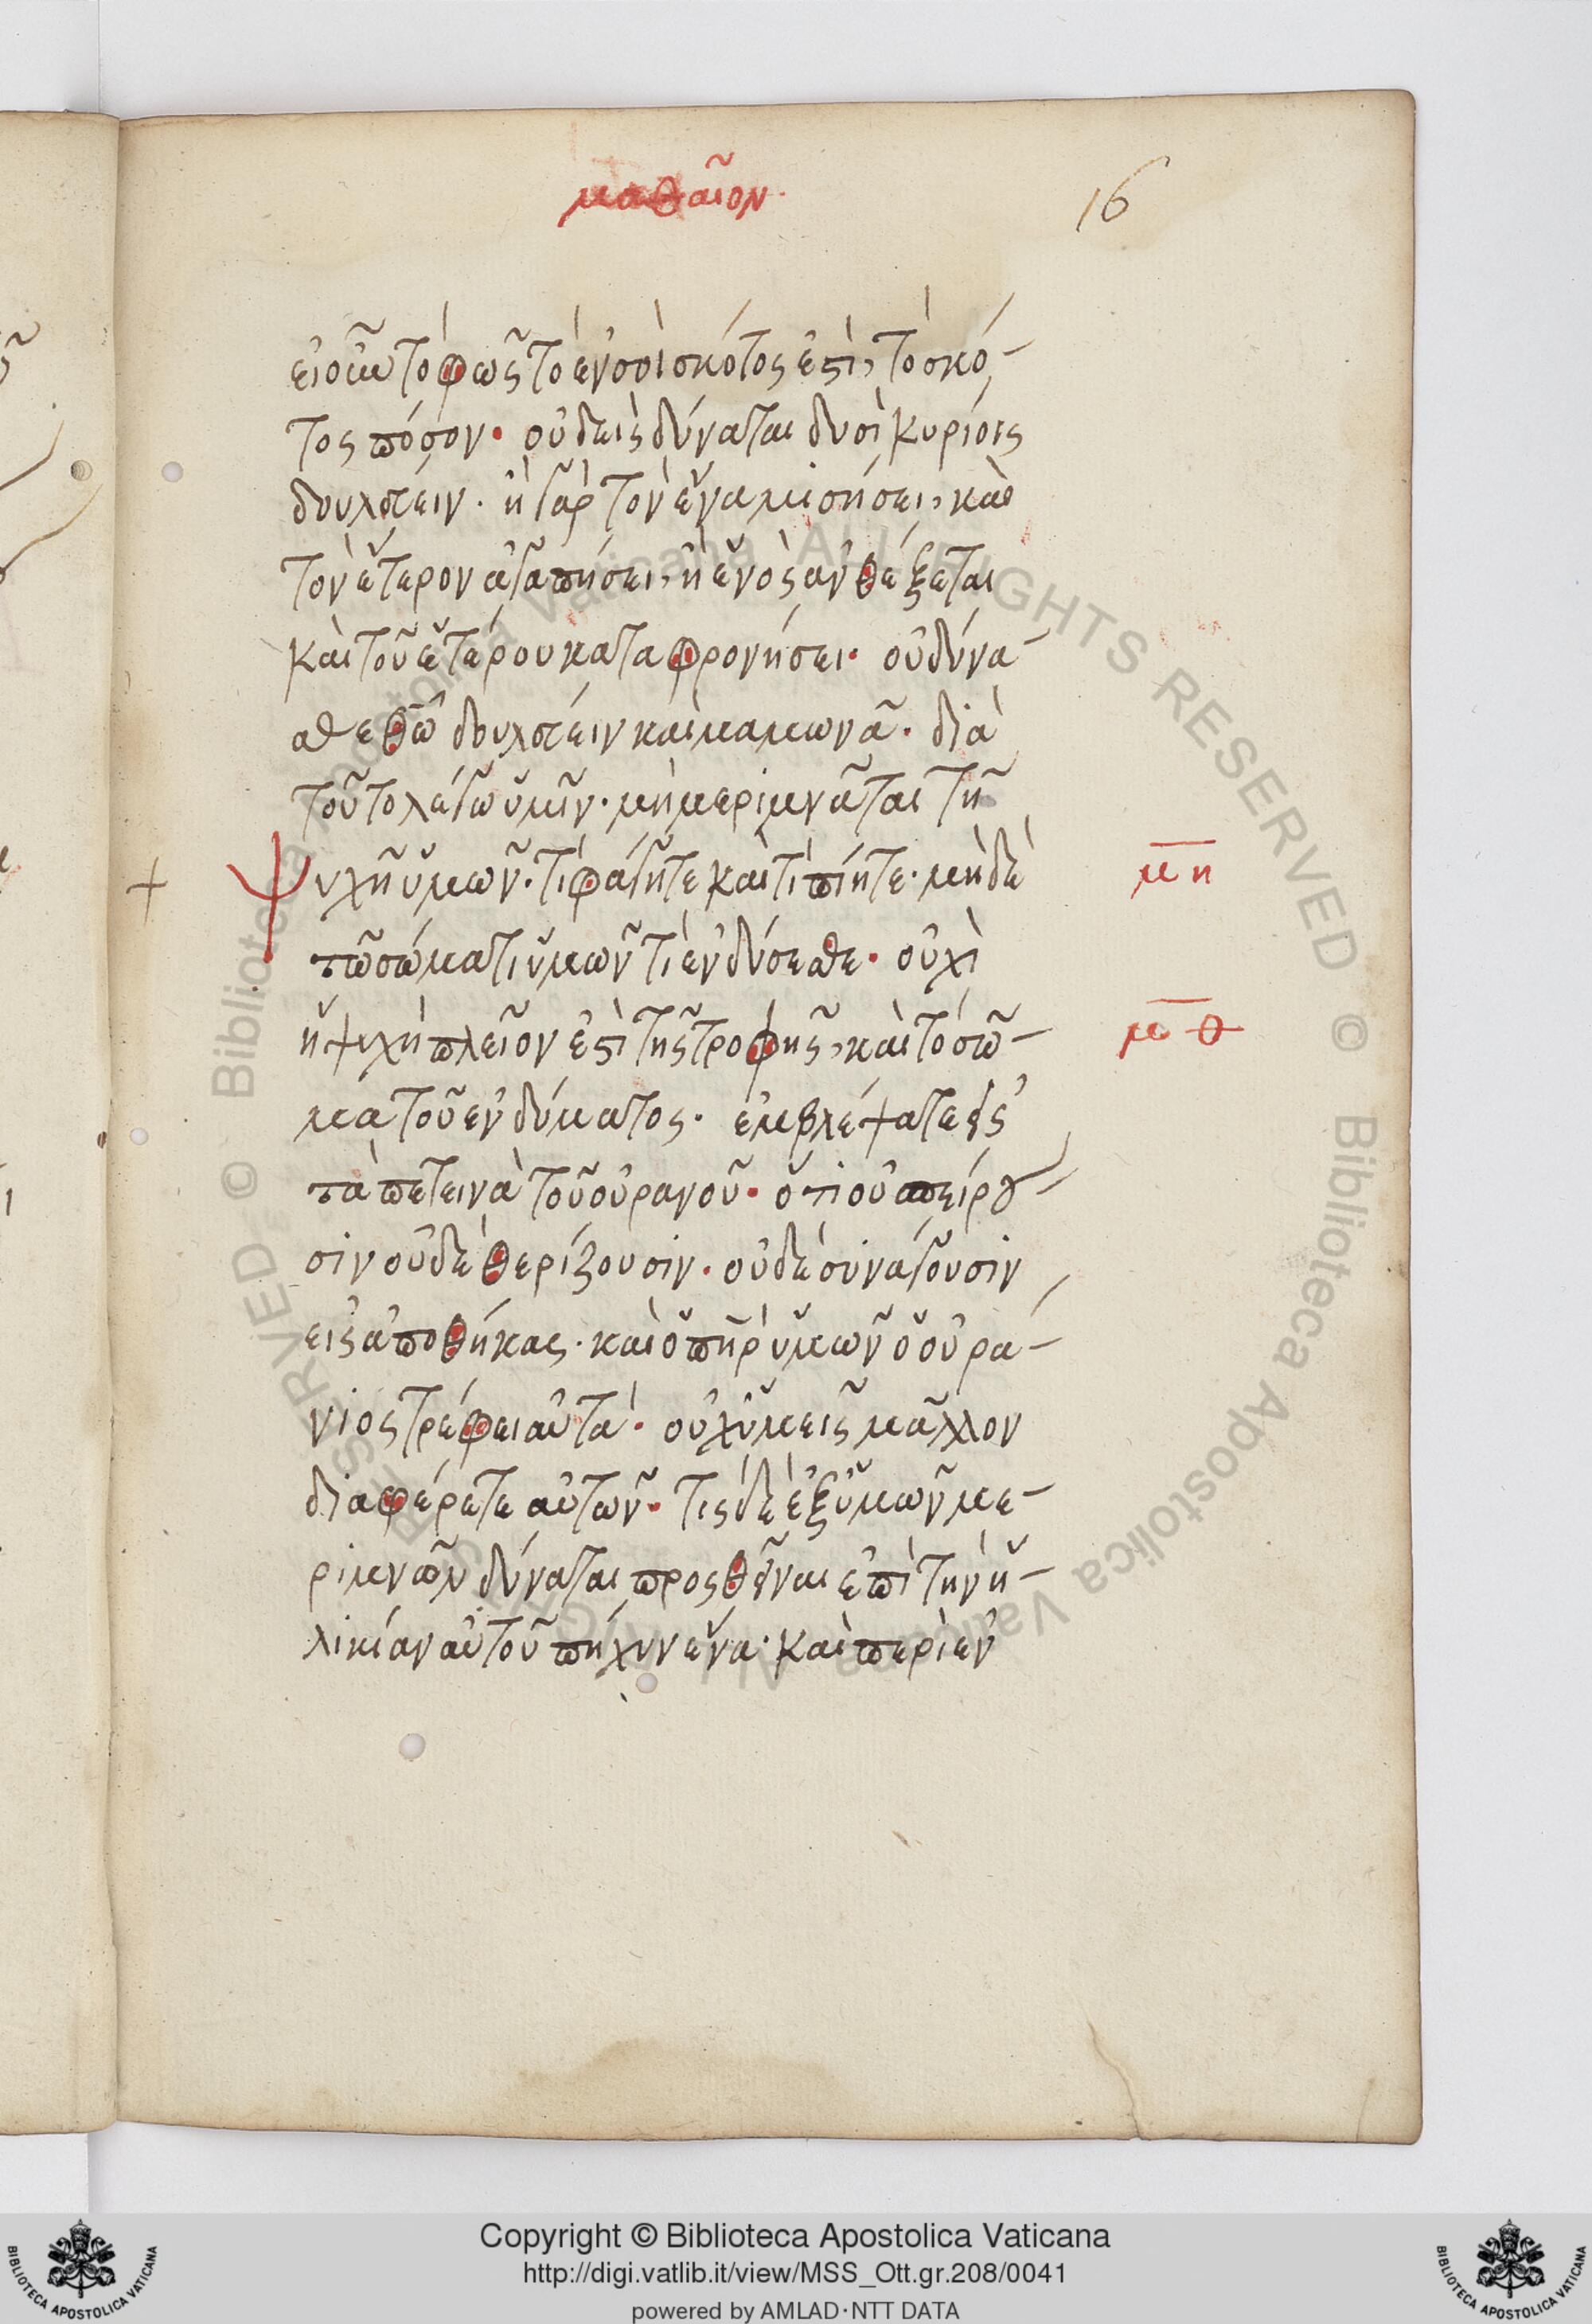 μαθαῖον.
16
εἰ οὖν τὸ φῶς τὸ ἐν σοὶ σκότος ἐστὶ, τὸ σκό-
τος πόσον· οὐδεὶς δύναται δυσὶ κυρίοις
δουλεύειν. ἢ γὰρ τὸν ἕνα μισήσει, καὶ
τὸν ἕτερον ἀγαπήσει, ἢ ἑνὸς ἀνθέξεται
καὶ τοῦ ἑτέρου καταφρονήσει· οὐ δύνα-
σθε θῶ δουλεύειν καὶ μαμωνᾶ. διὰ
τοῦτο λέγω ὑμῖν. μὴ μεριμνᾶται τῆ
ψυχῆ ὑμῶν. τί φάγητε καὶ τί πίητε. μηδὲ
τῶ σώματι ὑμῶν τί ἐνδύσεσθε· οὐχὶ
ἡ ψυχὴ πλεῖον ἐστὶ τῆς τροφῆς, καὶ τὸ σῶ-
μα τοῦ ἐνδύματος. ἐμβλέψατε εἰς
τὰ πετεινὰ τοῦ οὐρανοῦ· ὅτι οὐ σπείρου-
σιν οὐδὲ θερίζουσιν. οὐδὲ συνάγουσιν
εἰς ἀποθήκας. καὶ ὁ πηρ ὑμῶν ὁ οὐρά-
νιος τρέφει αὐτά. οὐχ ὑμεῖς μᾶλλον
διαφέρετε αὐτῶν. τίς δὲ ἐξ ὑμῶν με-
ριμνῶν δύναται προσθῆναι ἐπὶ τὴν ἡ-
λικίαν αὐτοῦ πήχυν ἕνα. καὶ περὶ ἐν
μη
μθ
Copyright © Biblioteca Apostolica Vaticana
http://digi.vatlib.it/view/MSS_Ott.gr.208/0041
powered by AMLAD·NTT DATA